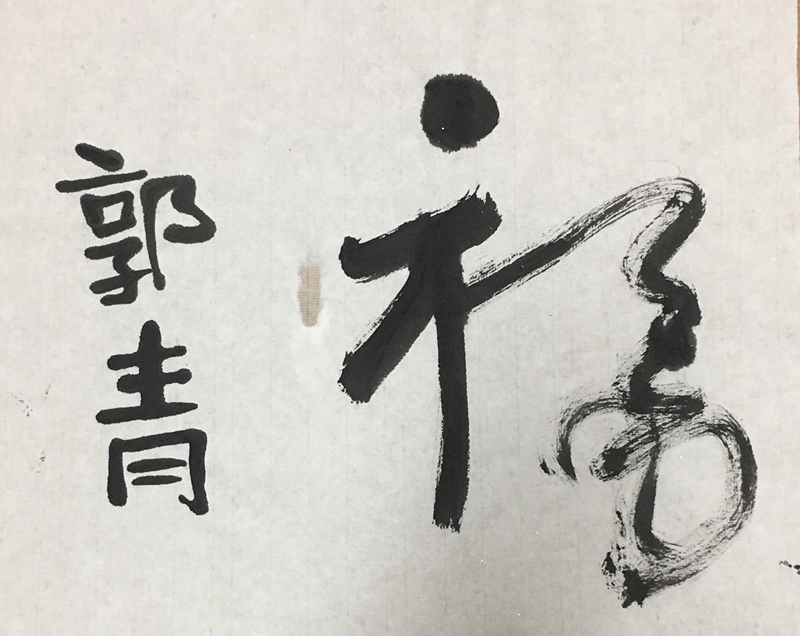 福
郭青